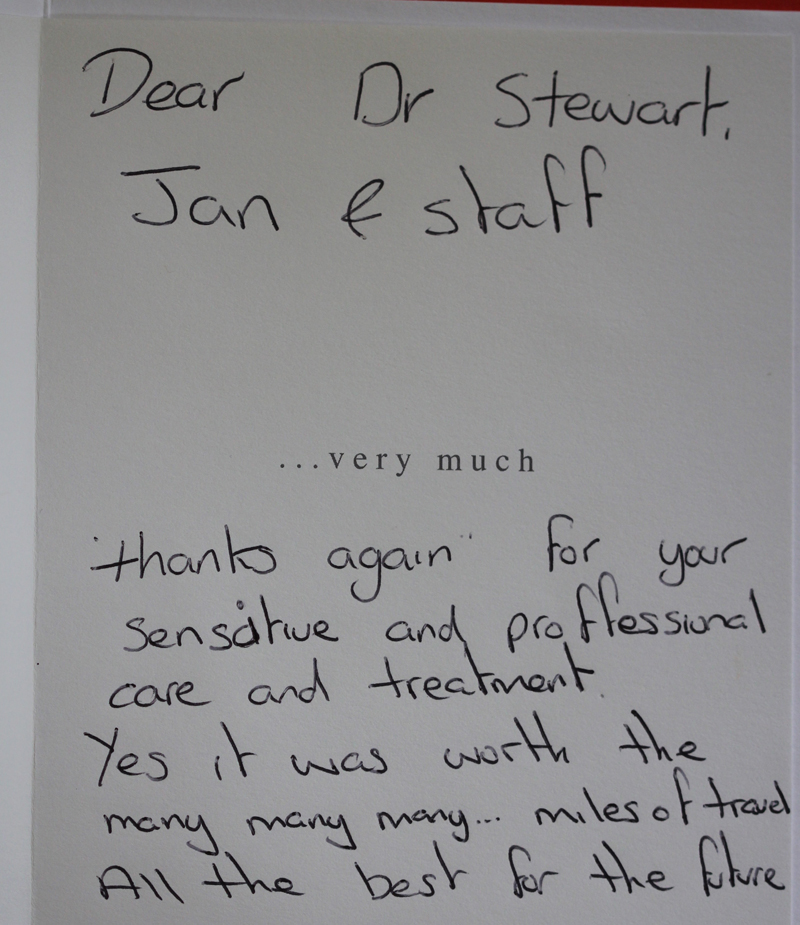 Dear Dr Stewart,
Jan & staff
...very much
"thanks again" for your
sensitive and proffessional
care and treatment.
Yes it was worth the
many many many... miles of travel
All the best for the future